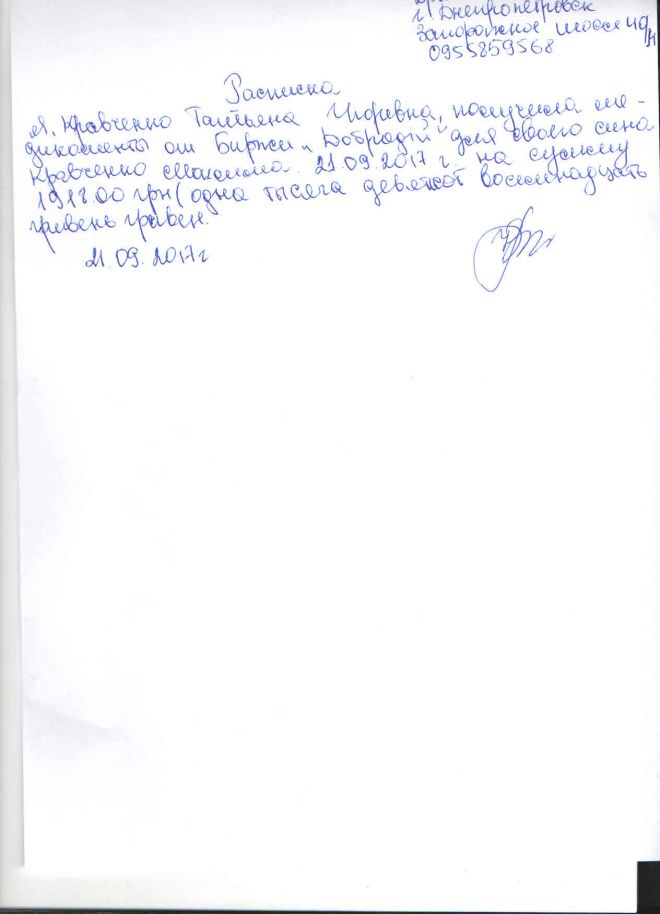 г. Днепропетровск
Запорожское шоссе 40/
0955859568
Расписка
Я, Кравченко Татьяна Игоревна, получила ме-
дикаменты от Биржи „Добродій" для своего сина
Кравченко Максима. 21.09.2017 г. на сумму
1918.00 грн (одна тысяча девятсот восемнадцать
гривень гривен.
21.09.2017г